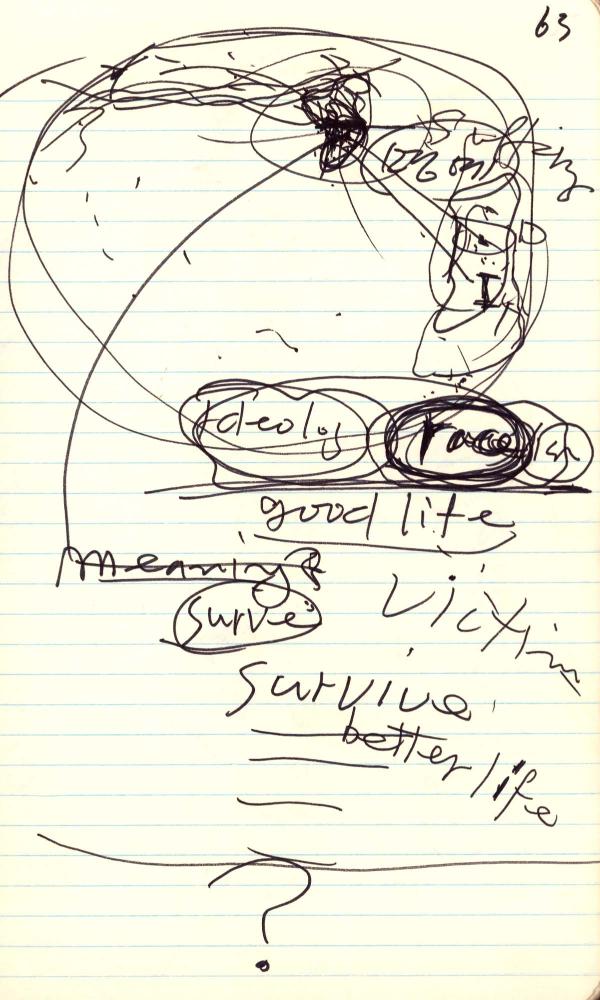 63
I
Ideoly race
good life
meaning?
Surve
victim
Survive
better life
?